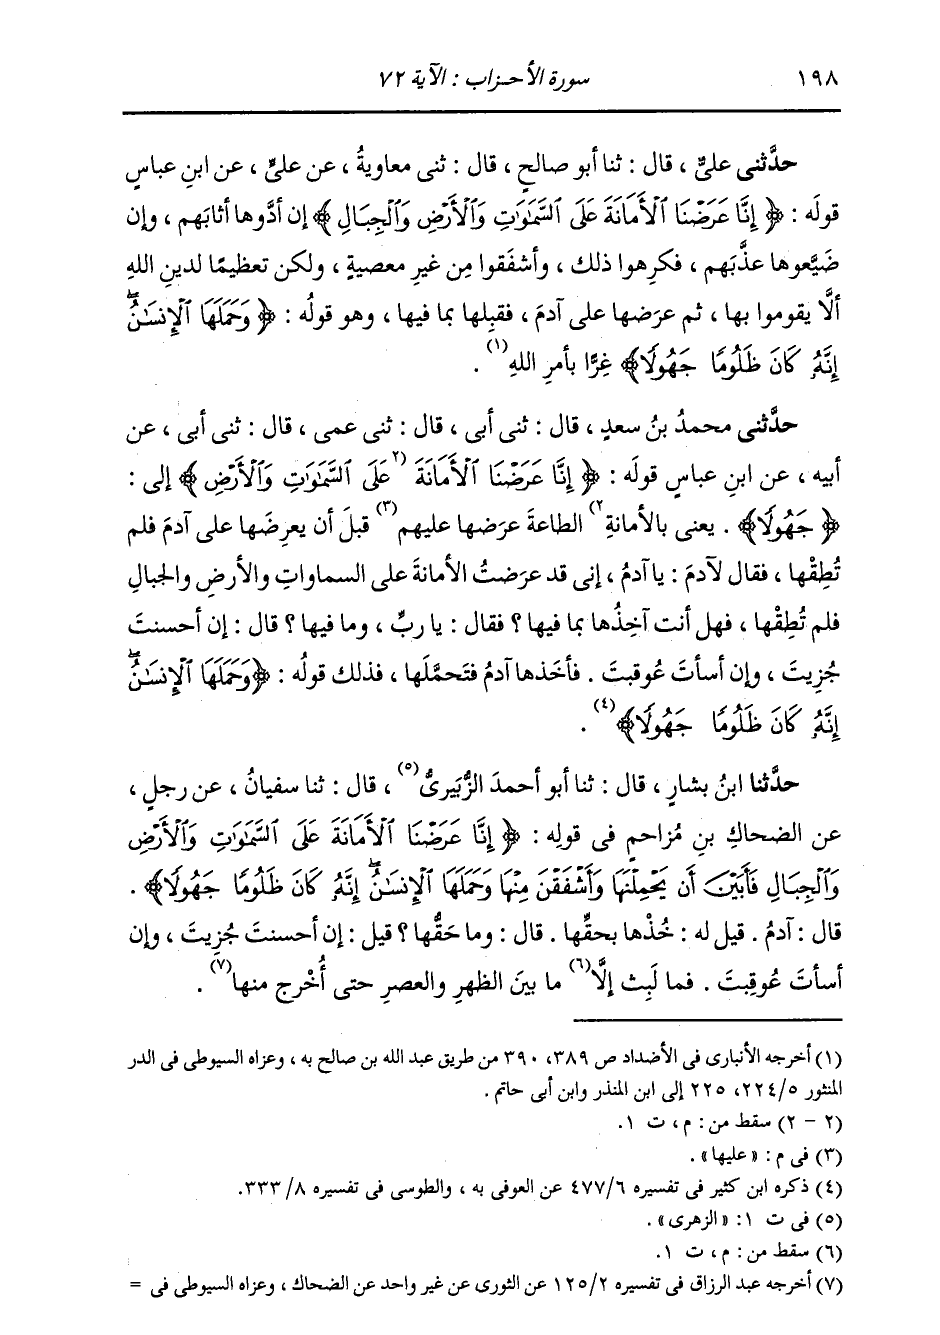 ١٩٨ سورة الأحزاب : الآية ٧٢
حدَّثنى علىٌّ ، قال : ثنا أبو صالحٍ ، قال : ثنى معاويةُ ، عن علىٍّ ، عن ابنِ عباسٍ
قولَه : ﴿ إِنَّا عَرَضْنَا ٱلْأَمَانَةَ عَلَى ٱلسَّمَٰوَٰتِ وَٱلْأَرْضِ وَٱلْجِبَالِ ﴾ إن أدَّوها أثابَهم ، وإن
ضَيَّعوها عذَّبَهم ، فكرِهوا ذلك ، وأشفَقوا مِن غيرِ معصيةٍ ، ولكن تعظيمًا لدينِ اللهِ
ألَّا يقوموا بها ، ثم عرَضها على آدمَ ، فقبِلها بما فيها ، وهو قولُه : ﴿ وَحَمَلَهَا ٱلْإِنسَٰنُۖ
إِنَّهُۥ كَانَ ظَلُومًا جَهُولًا﴾ غِرًّا بأمرِ اللهِ(١) .
حدَّثنى محمدُ بنُ سعدٍ ، قال : ثنى أبى ، قال : ثنى عمى ، قال : ثنى أبى ، عن
أبيه ، عن ابنِ عباسٍ قولَه : ﴿ إِنَّا عَرَضْنَا ٱلْأَمَانَةَ (٢عَلَى ٱلسَّمَٰوَٰتِ وَٱلْأَرْضِ ﴾ إلى :
﴿ جَهُولًا﴾ . يعنى بالأمانةِ٢) الطاعةَ عرَضها عليهم(٣) قبلَ أن يعرِضَها على آدمَ فلم
تُطِقْها ، فقال لآدمَ : يا آدمُ ، إنى قد عرَضتُ الأمانةَ على السماواتِ والأرضِ والجبالِ
فلم تُطِقْها ، فهل أنت آخِذُها بما فيها ؟ فقال : يا ربِّ ، وما فيها ؟ قال : إن أحسنتَ
جُزِيتَ ، وإن أسأتَ عُوقبتَ . فأخَذها آدمُ فتَحمَّلَها ، فذلك قولُه : ﴿وَحَمَلَهَا ٱلْإِنسَٰنُۖ
إِنَّهُۥ كَانَ ظَلُومًا جَهُولًا﴾(٤) .
حدَّثنا ابنُ بشارٍ ، قال : ثنا أبو أحمدَ الزُّبَيرىُّ(٥) ، قال : ثنا سفيانُ ، عن رجلٍ ،
عن الضحاكِ بنِ مُزاحمٍ فى قولِه : ﴿ إِنَّا عَرَضْنَا ٱلْأَمَانَةَ عَلَى ٱلسَّمَٰوَٰتِ وَٱلْأَرْضِ
وَٱلْجِبَالِ فَأَبَيْنَ أَن يَحْمِلْنَهَا وَأَشْفَقْنَ مِنْهَا وَحَمَلَهَا ٱلْإِنسَٰنُۖ إِنَّهُۥ كَانَ ظَلُومًا جَهُولًا﴾ .
قال : آدمُ . قيل له : خُذْها بحقِّها . قال : وما حَقُّها ؟ قيل : إن أحسنتَ جُزِيتَ ، وإن
أسأتَ عُوقِبتَ . فما لَبِث إلَّا(٦) ما بينَ الظهرِ والعصرِ حتى أُخْرج منها(٧) .
(١) أخرجه الأنبارى فى الأضداد ص ٣٨٩، ٣٩٠ من طريق عبد الله بن صالح به ، وعزاه السيوطى فى الدر
المنثور ٢٢٤/٥، ٢٢٥ إلى ابن المنذر وابن أبى حاتم .
(٢ - ٢) سقط من : م ، ت ١.
(٣) فى م : «عليها» .
(٤) ذكره ابن كثير فى تفسيره ٤٧٧/٦ عن العوفى به ، والطوسى فى تفسيره ٣٣٣/٨.
(٥) فى ت ١: «الزهرى» .
(٦) سقط من : م ، ت ١.
(٧) أخرجه عبد الرزاق فى تفسيره ١٢٥/٢ عن الثورى عن غير واحد عن الضحاك ، وعزاه السيوطى فى =